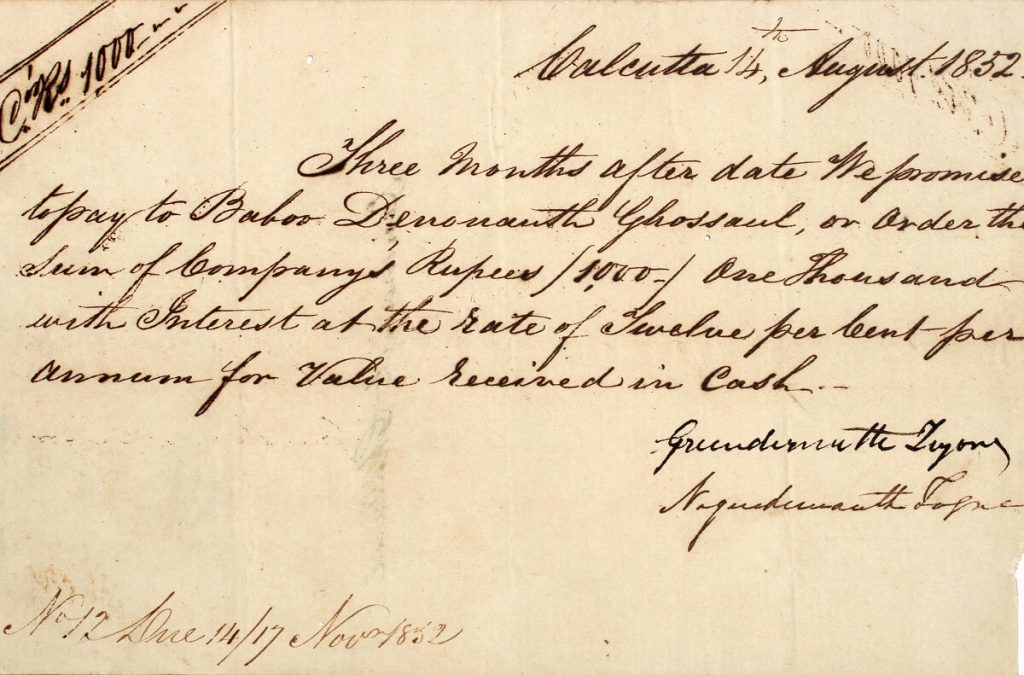 Co's Rs. 1000
Calcutta 14th, August. 1852.
Three Months after date We promise
to pay to Baboo Denonauth Ghossaul, or Order the
Sum of Company's Rupees /1000-/ One Thousand
with Interest at the rate of Twelve per Cent per
Annum for Value received in Cash.-
Greendernauth
No 12 Due 14/17 Novr 1852